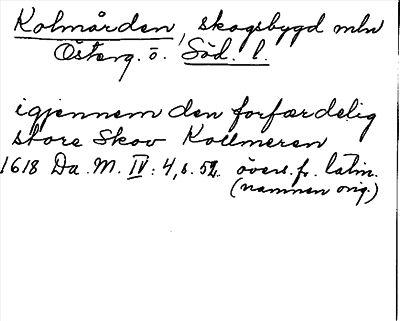 Kolmården, skogsbygd mln
Österg. o. Söd. l.
igjennem den forfærdelig
store Skov Kollmeren
1618 Da. M. IV: 4, s. 52. övers. fr. latin.
(namnen orig.)